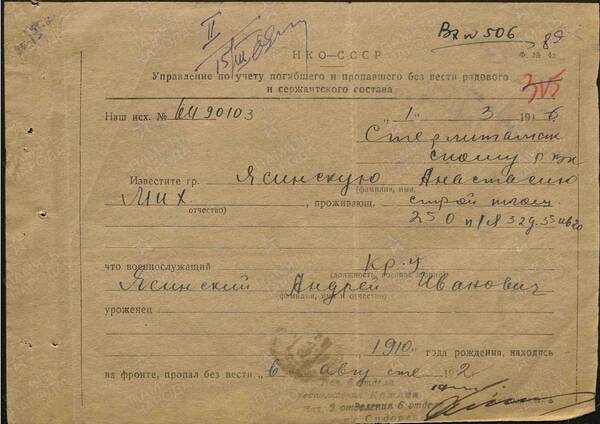 II
15/III
Вх № 506 89
НКО—СССР
Ф. № 4
Управление по учету погибшего и пропавшего без вести рядового
и сержантского состава
315
Наш исх. № 6м90103 „1“ 3 1946
Стерлитамак
скому рвк
Известите гр. Ясинскую Анастасию
(фамилия, имя,
Мих. , проживающ.
отчество)
250 п/я
что военнослужащий кр-ц
(должность, военное звание)
Ясинский Андрей Иванович
(фамилия, имя и отчество)
уроженец
1910 года рождения, находясь
на фронте, пропал без вести „6 августе 1942
Нач. 6 отдела
Нач. 2 отделения 6 отдела